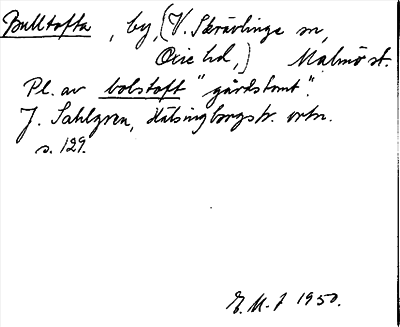 Bulltofta, by, (V. Skrävlinge sn,
Oxie hd,) Malmö st.
Pl. av bolstoft "gårdstomt".
J. Sahlgren, Hälsingborgstr. ortn.
s. 129.
1950.